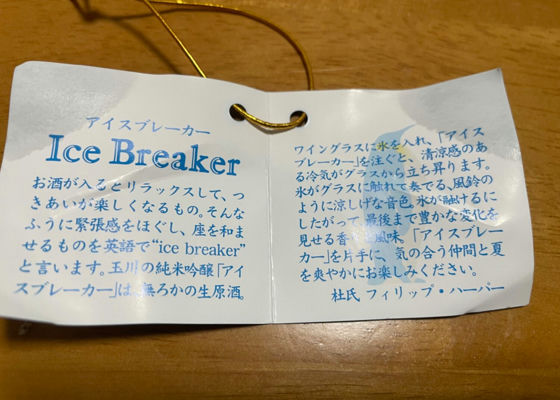 アイスブレーカー
Ice Breaker
お酒が入るとリラックスして、つ
きあいが楽しくなるもの。そんな
ふうに緊張感をほぐし、座を和ま
せるものを英語で“ice breaker”
と言います。玉川の純米吟醸「アイ
スブレーカー」は 無ろかの生原酒。
ワイングラスに氷を入れ、「アイス
ブレーカー」を注ぐと、清涼感のあ
る冷気がグラスから立ち昇ります。
氷がグラスに触れて奏でる、風鈴の
ように涼しげな音色。氷が融けるに
したがって 最後まで豊かな変化を
見せる香 風味。「アイスブレー
カー」を片手に、気の合う仲間と夏
を爽やかにお楽しみください。
杜氏 フィリップ・ハーパー